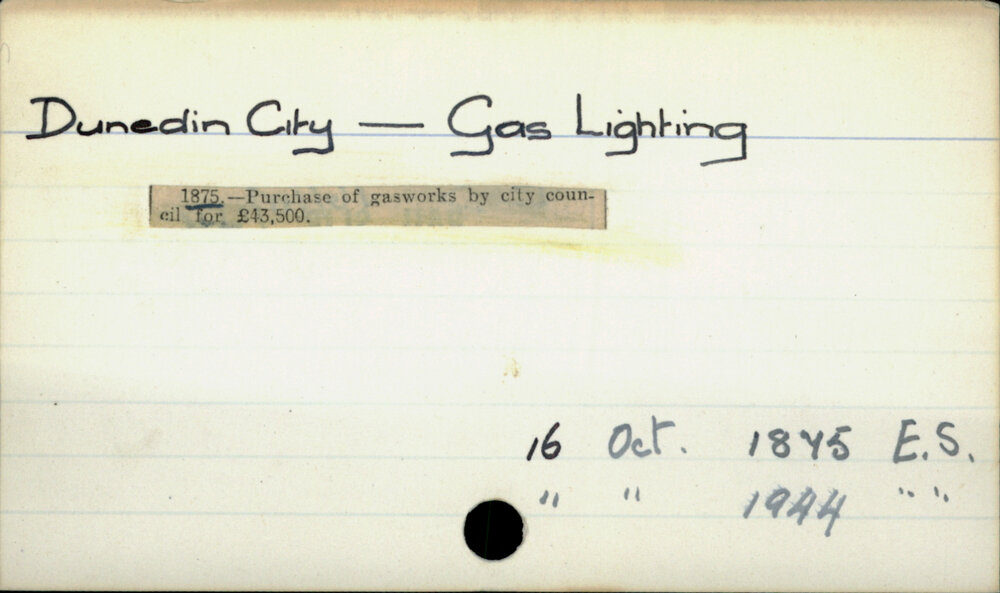 Dunedin City — Gas Lighting
1875.—Purchase of gasworks by city coun-
cil for £43,500.
16 Oct. 1875 E.S.
" " 1944 " "